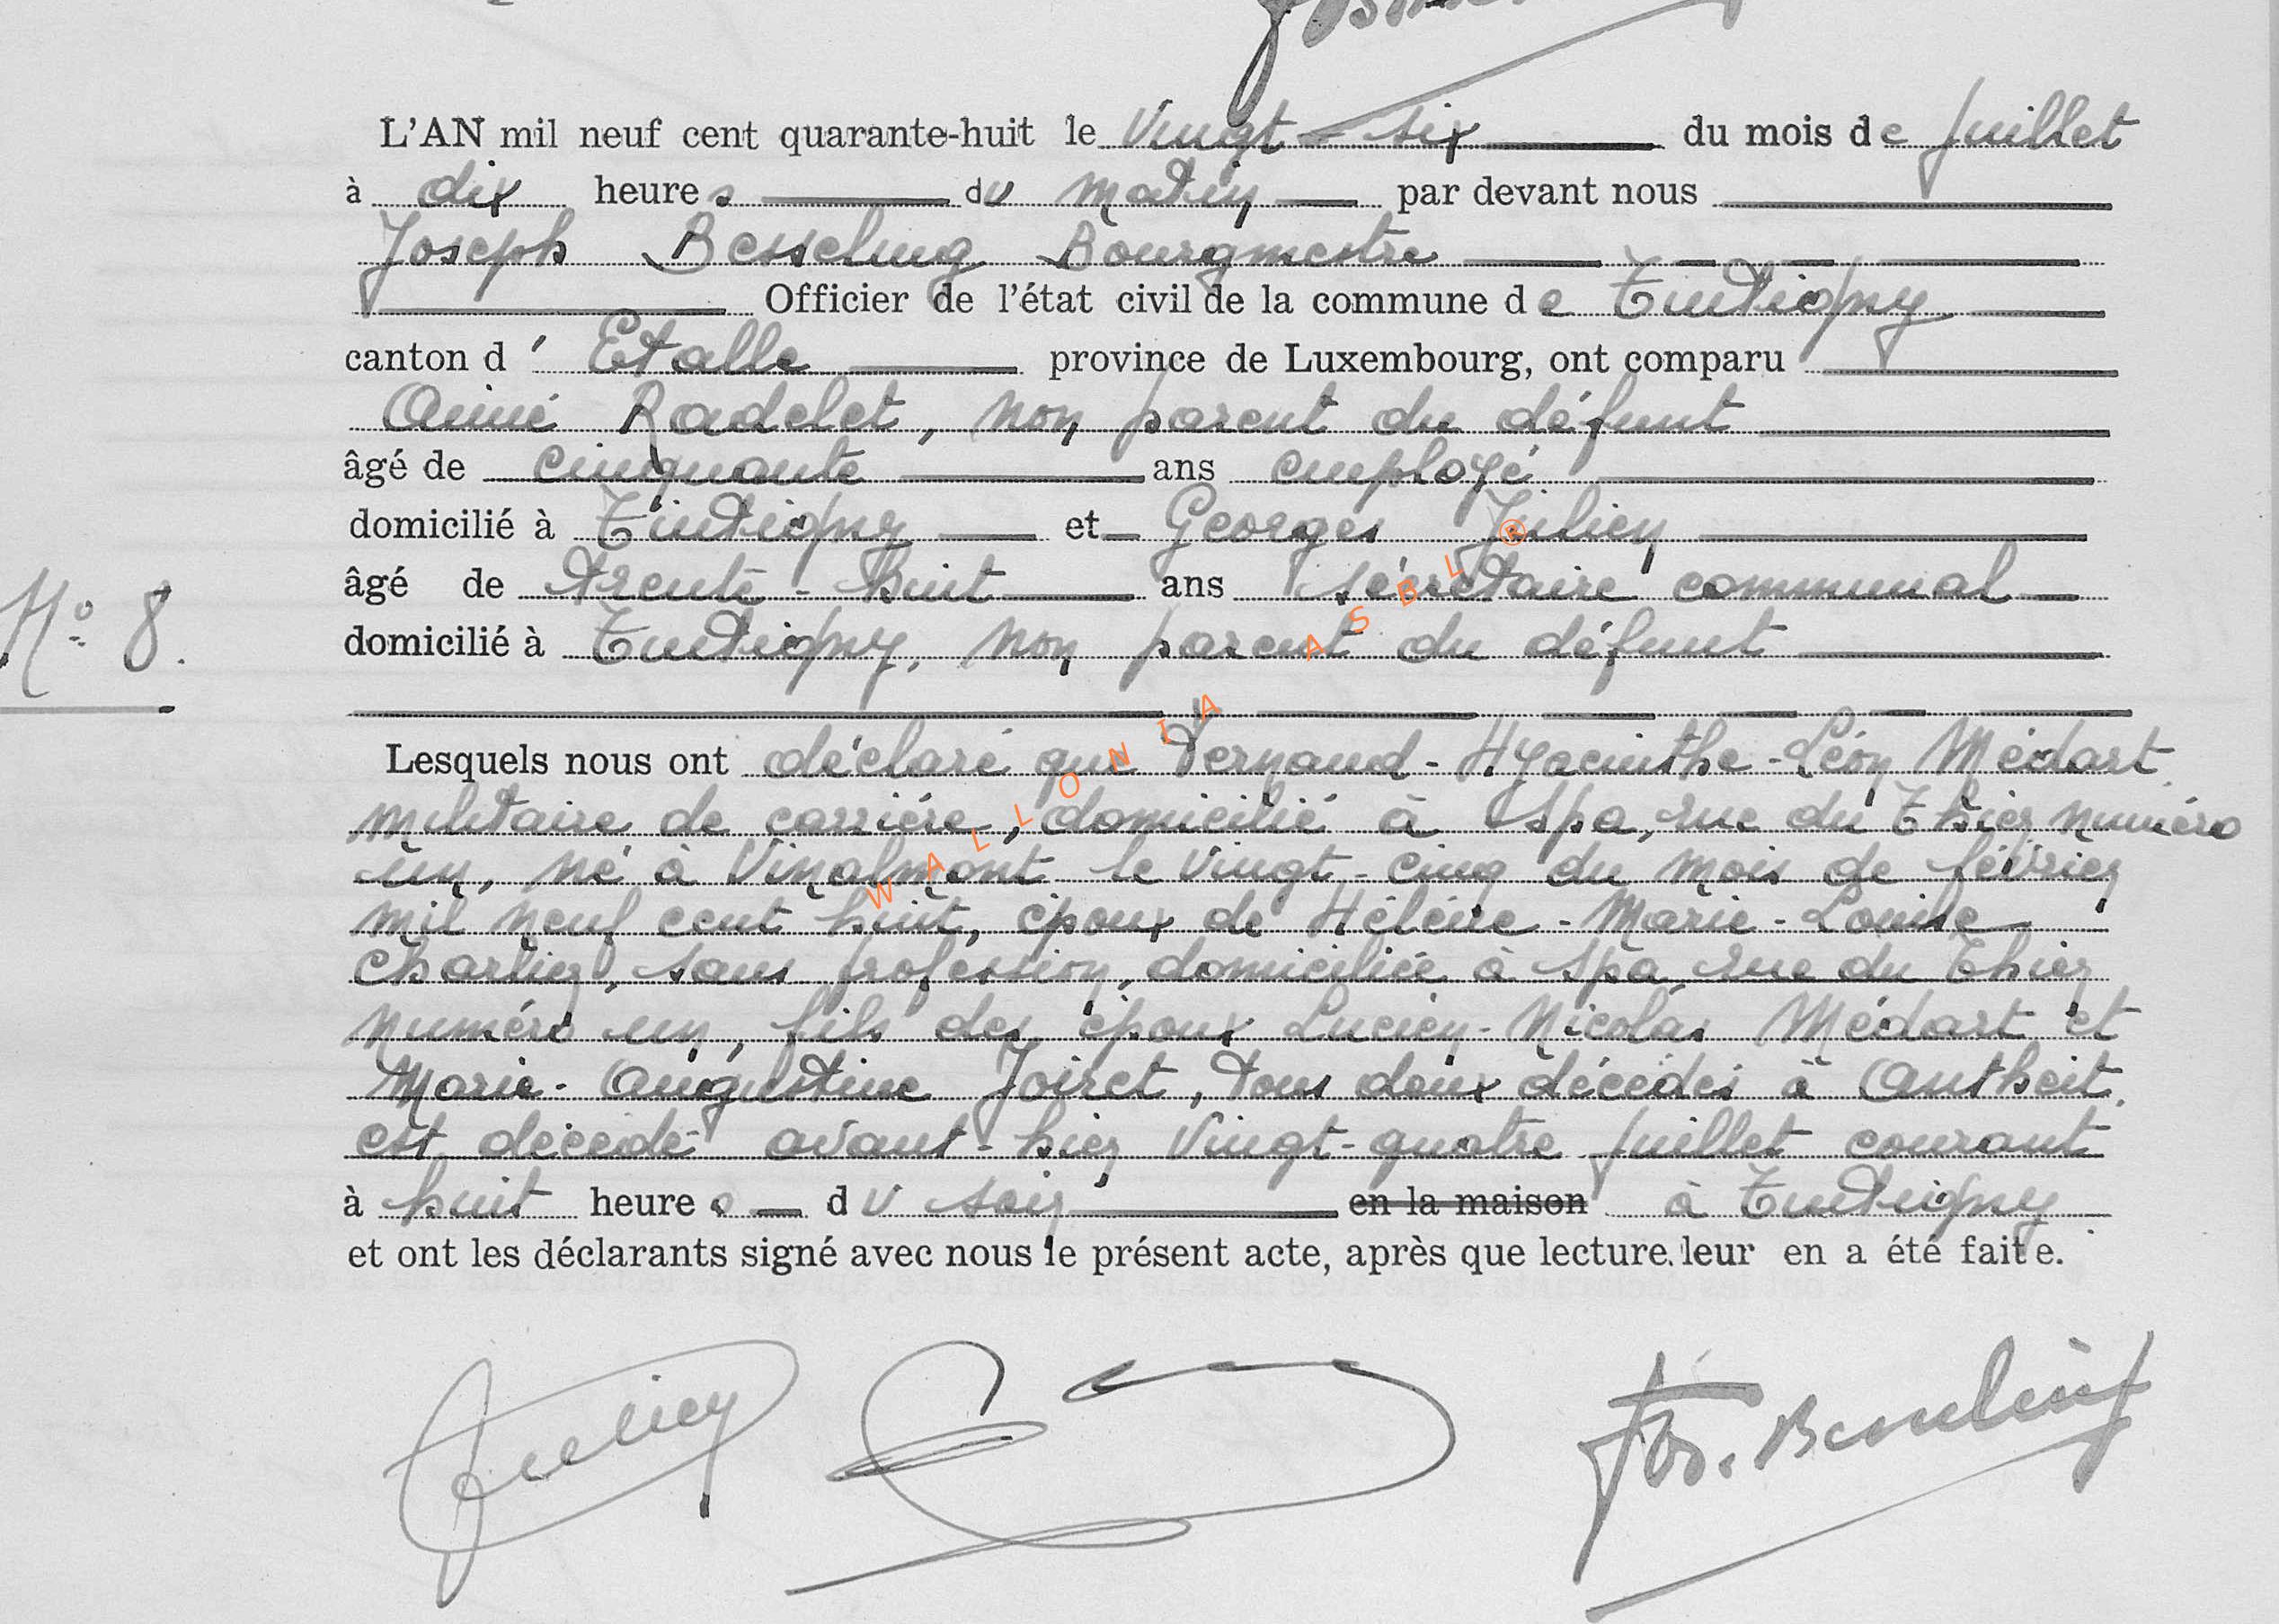 L'AN mil neuf cent quarante-huit le Vingt-six du mois de Juillet
à dix heures du matin par devant nous
Joseph Besseling Bourgmestre
Officier de l'état civil de la commune de Tintigny
canton d'Etalle province de Luxembourg, ont comparu
Aimé Radelet, non parent du défunt
âgé de cinquante ans employé
domicilié à Tintigny et Georges Julien
âgé de trente-huit ans secrétaire communal
N° 8.
domicilié à Tintigny, non parent du défunt
Lesquels nous ont déclaré que Fernand-Hyacinthe-Léon Médart
militaire de carrière, domicilié à Spa, rue du Thier numéro
un, né à Vinalmont le vingt-cinq du mois de février
mil neuf cent huit, époux de Hélène-Marie-Louise
Charlier, sans profession, domiciliée à Spa, rue du Thier
numéro un, fils des époux Lucien-Nicolas Médart et
Marie-Augustine Joiret, tous deux décédés à Antheit
est décédé avant-hier vingt-quatre juillet courant
à huit heures du soir en la maison à Tintigny
et ont les déclarants signé avec nous le présent acte, après que lecture leur en a été faite.
Julien Jos. Besseling
WALLONIA ASBL ®